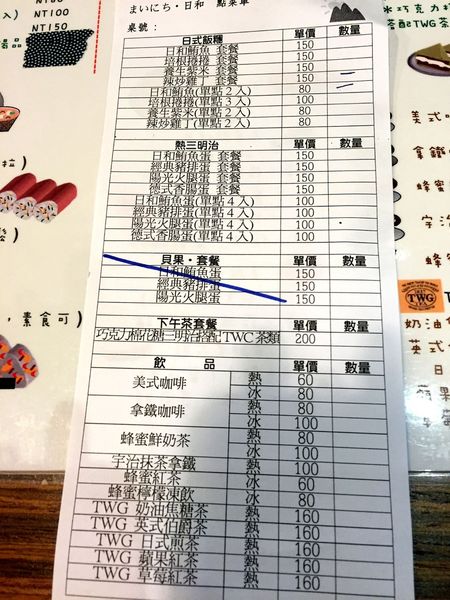 まいにち・日和 點菜單
桌號：
日式飯糰 單價 數量
日和鮪魚 套餐 150
培根捲捲 套餐 150
養生紫米 套餐 150
辣炒雞丁 套餐 150
日和鮪魚(單點2入) 80
培根捲捲(單點3入) 100
養生紫米(單點2入) 80
辣炒雞丁(單點2入) 80
熱三明治 單價 數量
日和鮪魚蛋 套餐 150
經典豬排蛋 套餐 150
陽光火腿蛋 套餐 150
德式香腸蛋 套餐 150
日和鮪魚蛋(單點4入) 100
經典豬排蛋(單點4入) 100
陽光火腿蛋(單點4入) 100
德式香腸蛋(單點4入) 100
貝果・套餐 單價 數量
日和鮪魚蛋 150
經典豬排蛋 150
陽光火腿蛋 150
下午茶套餐 單價 數量
巧克力棉花糖三明治搭配TWC茶類 200
飲 品 單價 數量
美式咖啡 熱 60
冰 80
拿鐵咖啡 熱 80
冰 100
蜂蜜鮮奶茶 熱 80
冰 100
宇治抹茶拿鐵 熱 100
蜂蜜紅茶 冰 60
蜂蜜檸檬凍飲 冰 80
TWG 奶油焦糖茶 熱 160
TWG 英式伯爵茶 熱 160
TWG 日式煎茶 熱 160
TWG 蘋果紅茶 熱 160
TWG 草莓紅茶 熱 160
NT100
NT150
湯品
拉)
鬆)
，素食可)
米巧克力
搭配TWG茶
美式咖
拿鐵
蜂蜜
宇治
蜂蜜
TWG
奶油
英式
日
蘋果